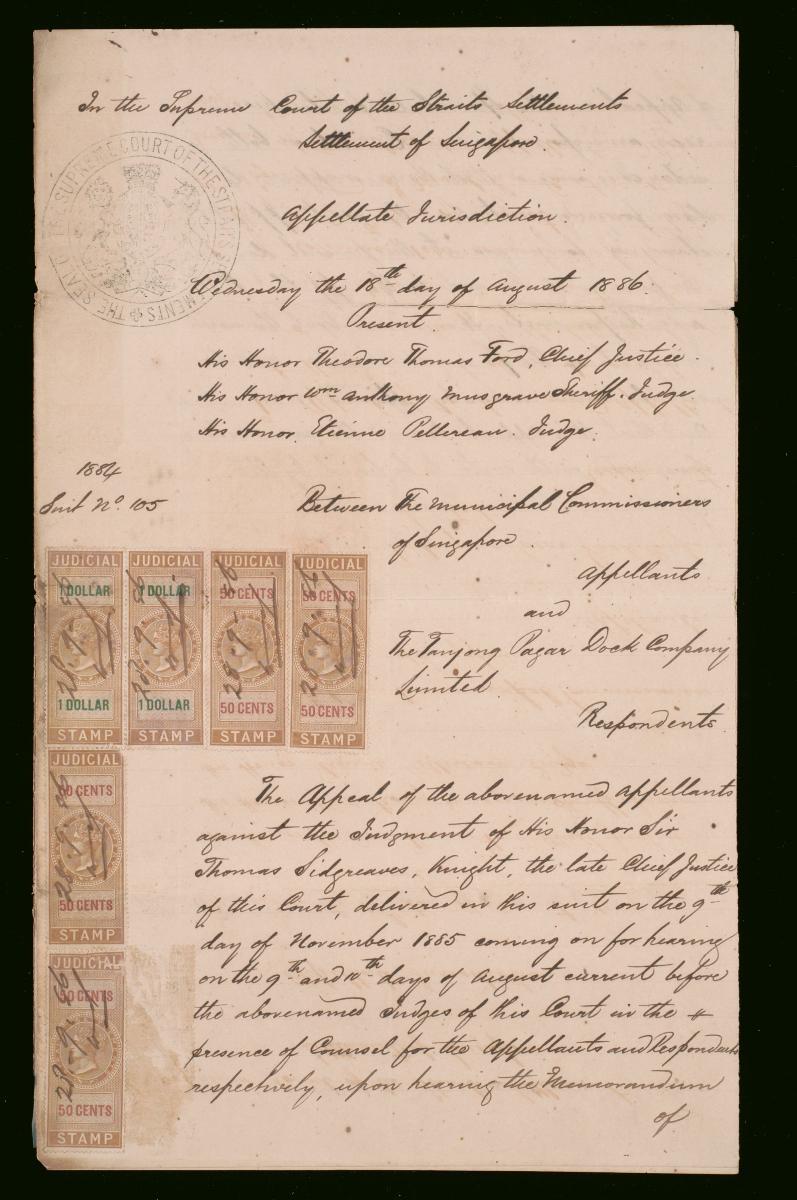 In the Supreme Court of the Straits Settlements
Settlement of Singapore.
THE SEAL OF THE SUPREME COURT OF THE STRAITS SETTLEMENTS
Appellate Jurisdiction.
Wednesday the 18th day of August 1886.
Present.
His Honor Theodore Thomas Ford, Chief Justice.
His Honor Wm Anthony Musgrave Sheriff. Judge.
His Honor Etienne Pellereau. Judge.
1884
Suit No. 105
Between The Municipal Commissioners
of Singapore.
Appellants
and
The Tanjong Pagar Dock Company
Limited.
Respondents.
JUDICIAL
1 DOLLAR
28.9.86
1 DOLLAR
STAMP
JUDICIAL
1 DOLLAR
28.9.86
1 DOLLAR
STAMP
JUDICIAL
50 CENTS
28-9-86
50 CENTS
STAMP
JUDICIAL
50 CENTS
28.9.86
50 CENTS
STAMP
JUDICIAL
50 CENTS
28-9-86
50 CENTS
STAMP
JUDICIAL
50 CENTS
28-9-86
50 CENTS
STAMP
The Appeal of the abovenamed appellants
against the Judgment of His Honor Sir
Thomas Sidgreaves, Knight, the late Chief Justice
of this Court, delivered in this suit on the 9th
day of November 1885 coming on for hearing
on the 9th and 10th days of August current before
the abovenamed Judges of this Court in the
presence of Counsel for the Appellants and Respondents
respectively, upon hearing the Memorandum
of